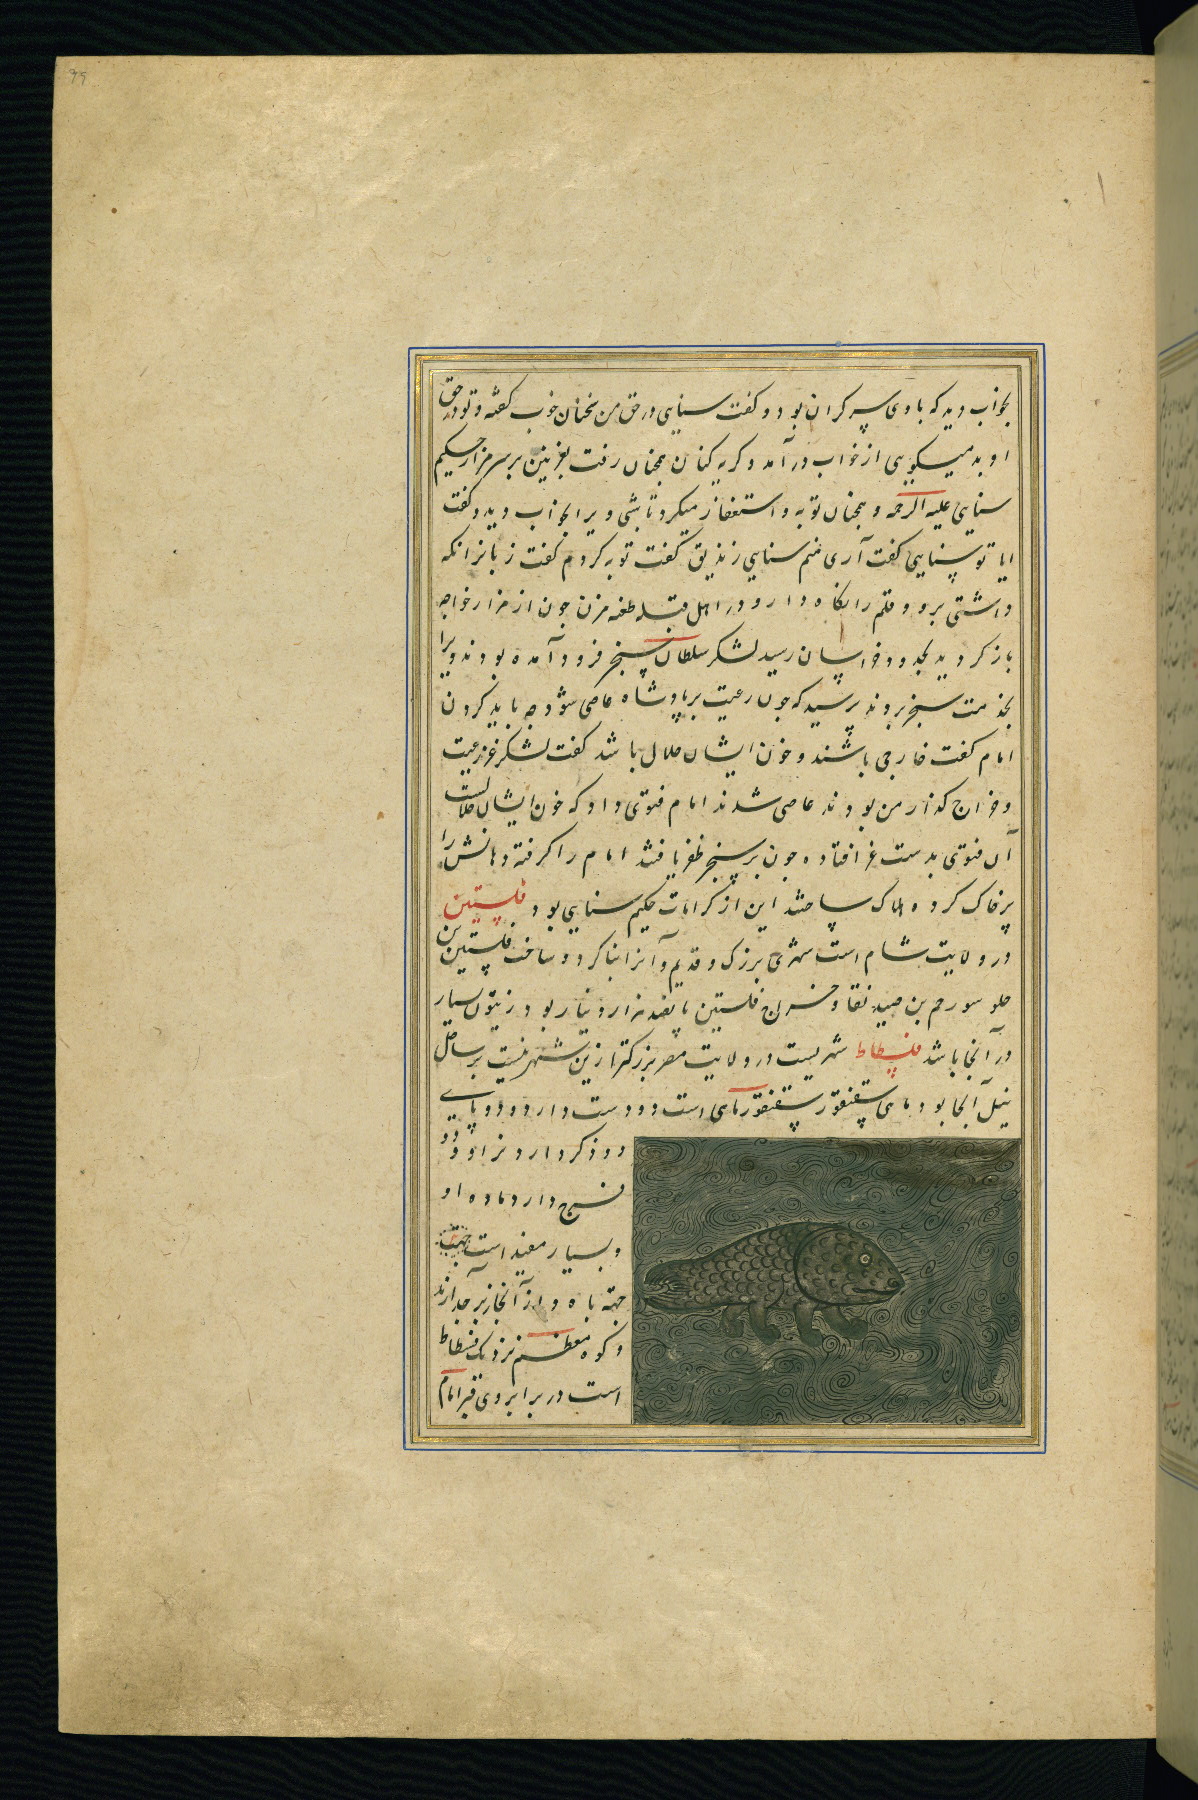 ۹۹
بخواب دید که با وی سر کران بود و کفت سنایی در حق من سخنان خوب کفته و تو در حق
او بد میکویی از خواب در آمد و کریه کنان همچنان رفت بغزنین بر سر مزار حکیم
سنایی علیه الرحمه و همچنان توبه و استغفار میکرد تا شبی ویرا بخواب دید و کفت
ایا تو سنایی کفت آری منم سنایی زندیق کفت توبه کردم کفت زبانرا نکه
داشتی برو و قلم را نکاه دار و در اهل قبله طعنه مزن چون از مزار خواجه
باز کردید بحدود خراسان رسید لشکر سلطان سنجر فرود آمده بودند ویرا
بخدمت سنجر بردند پرسید که چون رعیت بر پادشاه عاصی شود چه باید کردن
امام کفت خارجی باشند و خون ایشان حلال باشد کفت لشکر غز رعیت
و خراج کذار من بودند عاصی شدند امام فتوی داد که خون ایشان حلالست
آن فتوی بدست غز افتاده چون بر سنجر ظفر یافتند امام را کرفته دهانش را
پر خاک کرده هلاک ساختند این از کرامات حکیم سنایی بود فلستین
در ولایت شام است شهری بزرک و قدیم و آنرا بنا کرد و ساخت فلستین بن
حلوسورحم بن صیدنقا و خراج فلستین پانصد هزار دینار بود زیتون بسیار
در آنجا باشد فسطاط شهریست در ولایت مصر بزرکتر ازین شهر نیست بر ساحل
نیل آنجا بود ماهی سقنقور سقنقور ماهی است دو دست دارد و دو پای
دو ذکر دارد نر او و دو
فرج دارد ماده او
و بسیار مفید است جهت
جهة باه و از آنجا زبرجد آرند
و کوه مقطم نزدیک فسطاط
است در برابر وی قبر امام